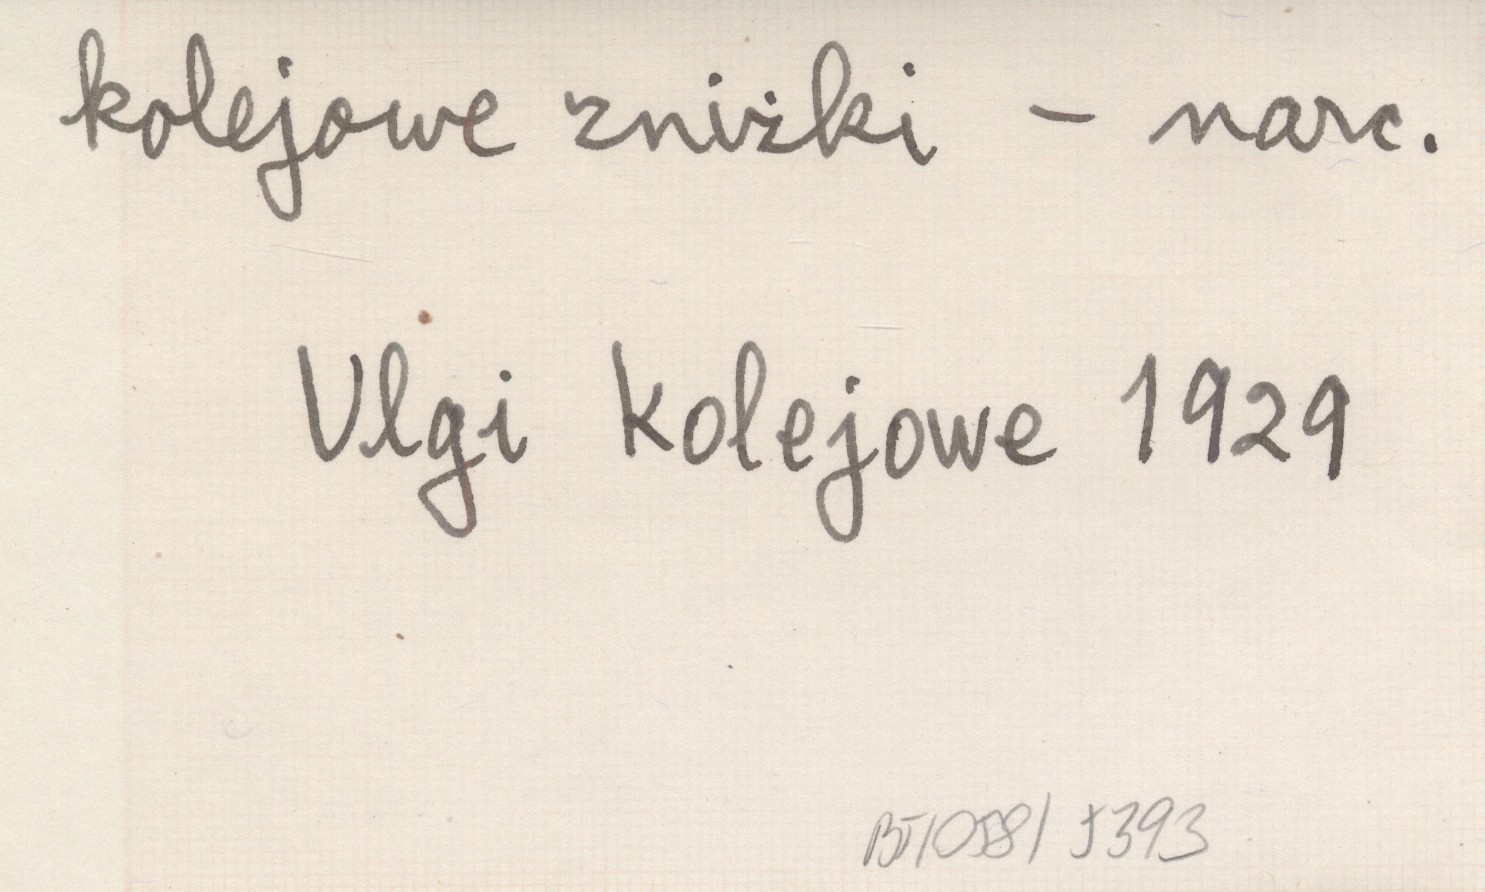 kolejowe zniżki – narc.
Ulgi kolejowe 1929
BT/058/5393